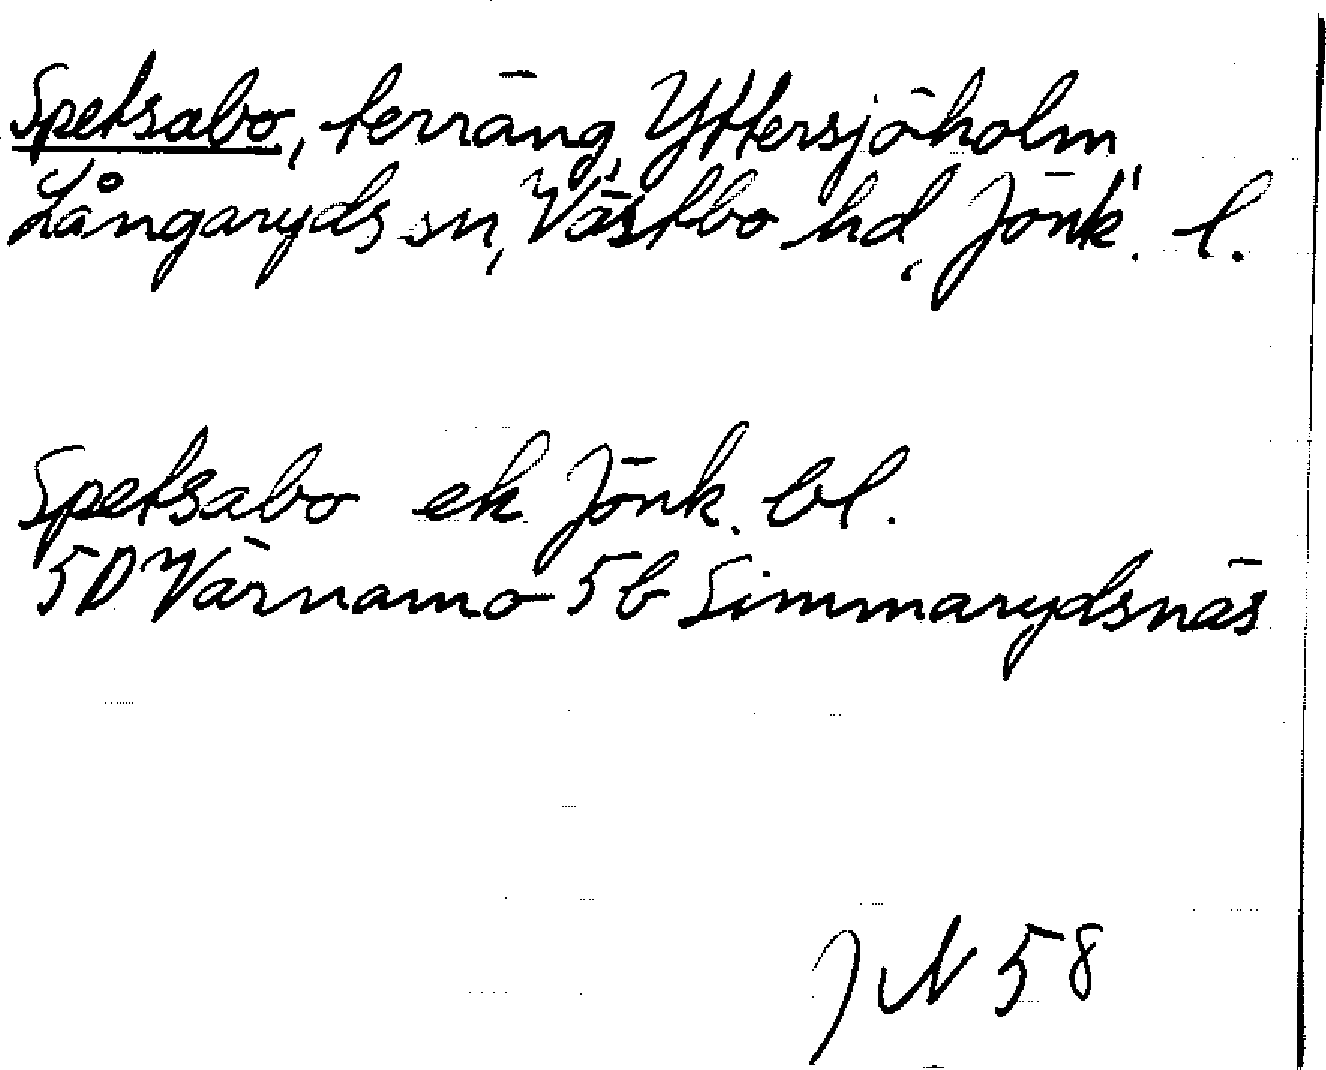 Spetsabo, terräng, Yttersjöholm,
Långaryds sn, Västbo hd, Jönk. l.
Spetsabo ek Jönk. bl.
5D Värnamo 5b Simmarydsnäs
58